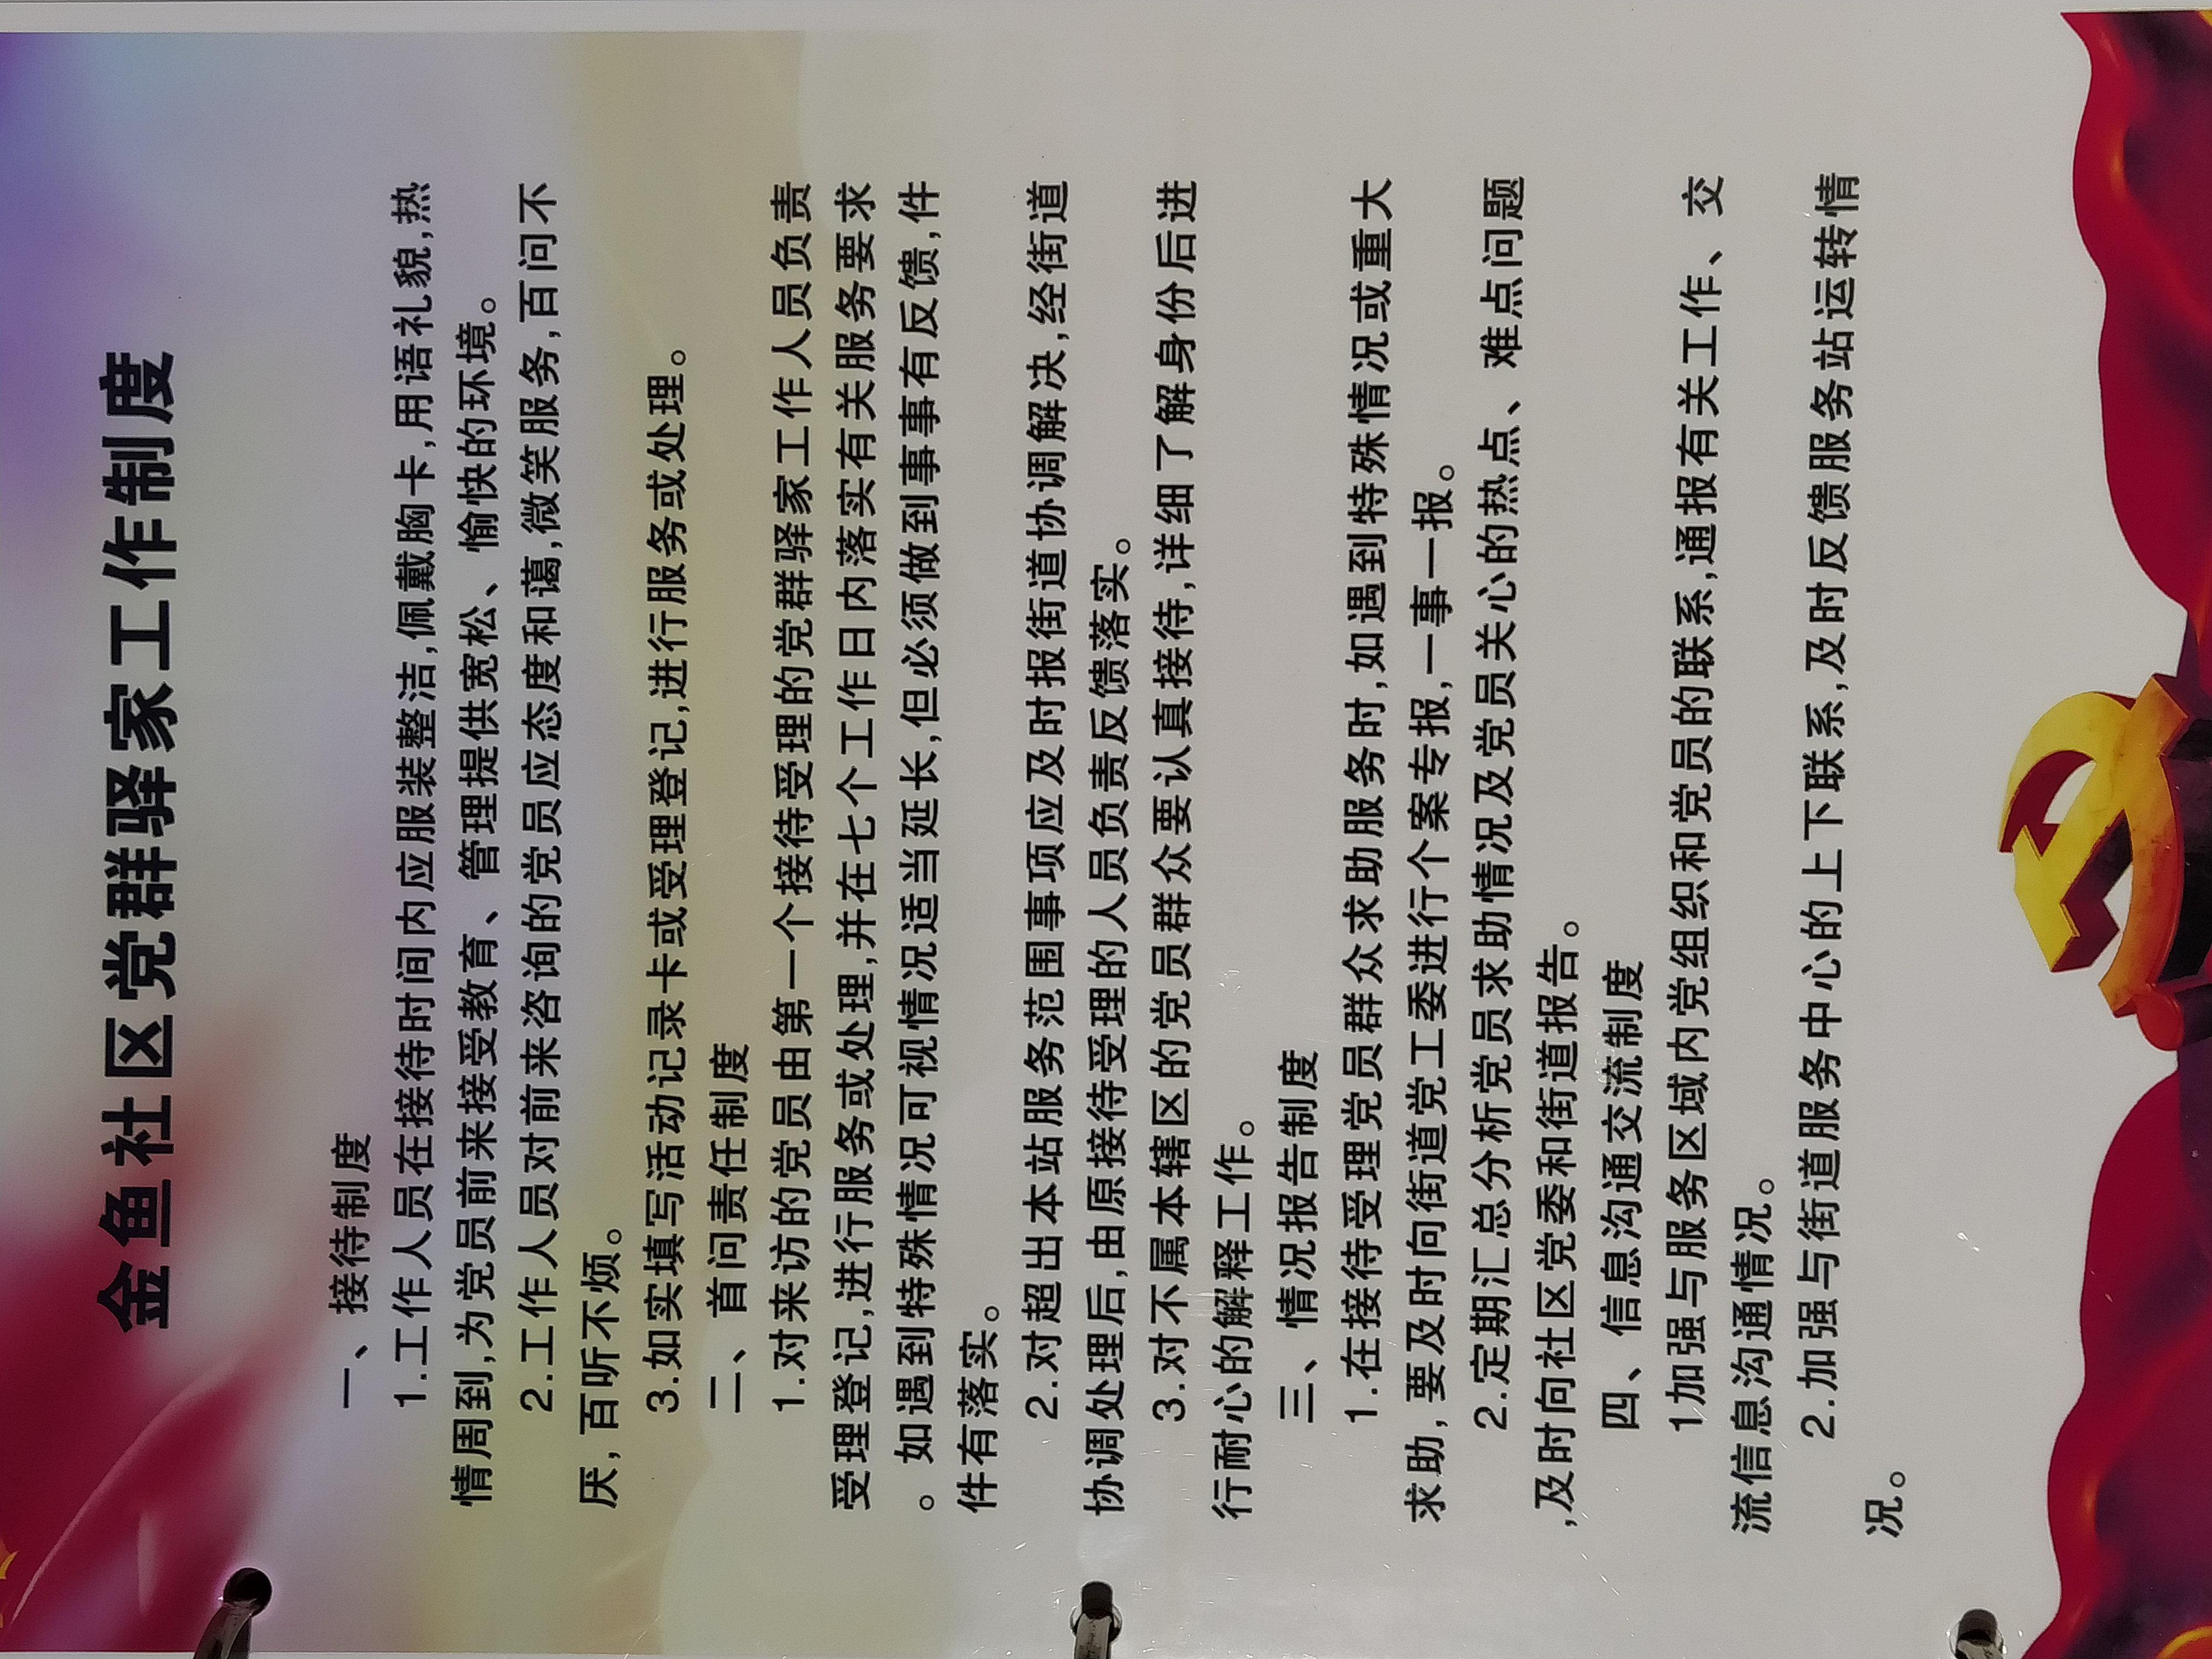 金鱼社区党群驿家工作制度
一、接待制度
1.工作人员在接待时间内应服装整洁,佩戴胸卡,用语礼貌,热
情周到,为党员前来接受教育、管理提供宽松、愉快的环境。
2.工作人员对前来咨询的党员应态度和蔼,微笑服务,百问不
厌,百听不烦。
3.如实填写活动记录卡或受理登记,进行服务或处理。
二、首问责任制度
1.对来访的党员由第一个接待受理的党群驿家工作人员负责
受理登记,进行服务或处理,并在七个工作日内落实有关服务要求
。如遇到特殊情况可视情况适当延长,但必须做到事事有反馈,件
件有落实。
2.对超出本站服务范围事项应及时报街道协调解决,经街道
协调处理后,由原接待受理的人员负责反馈落实。
3.对不属本辖区的党员群众要认真接待,详细了解身份后进
行耐心的解释工作。
三、情况报告制度
1.在接待受理党员群众求助服务时,如遇到特殊情况或重大
求助,要及时向街道党工委进行个案专报,一事一报。
2.定期汇总分析党员求助情况及党员关心的热点、难点问题
,及时向社区党委和街道报告。
四、信息沟通交流制度
1加强与服务区域内党组织和党员的联系,通报有关工作、交
流信息沟通情况。
2.加强与街道服务中心的上下联系,及时反馈服务站运转情
况。